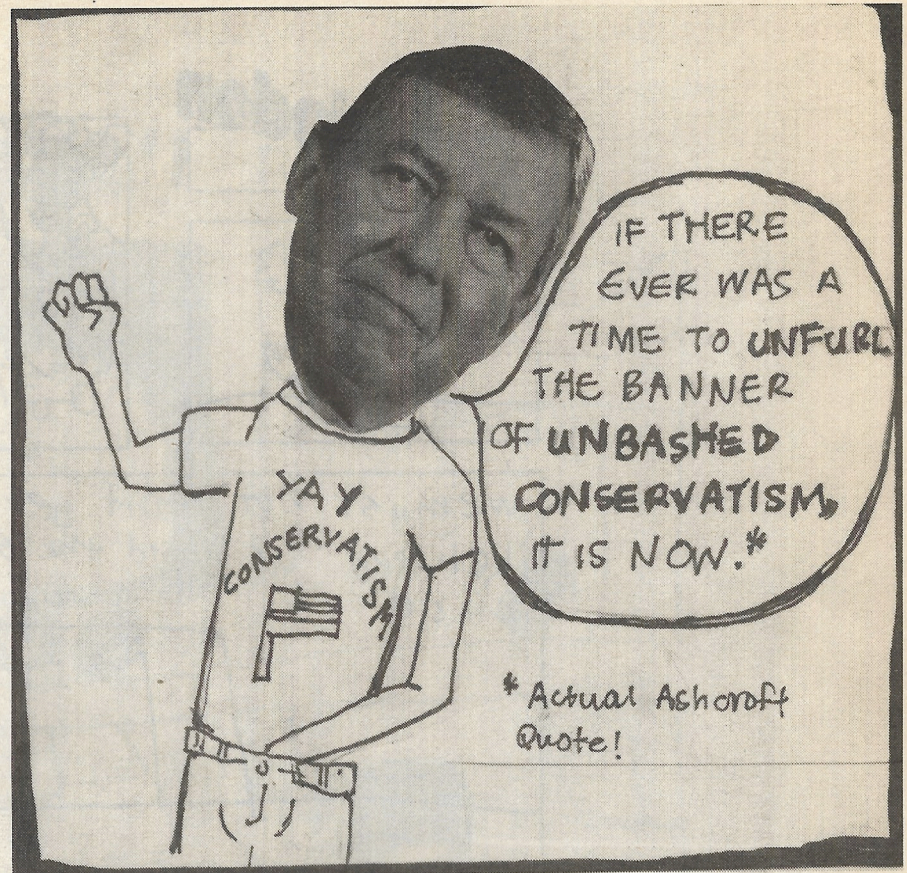 IF THERE
EVER WAS A
TIME TO UNFURL
THE BANNER
OF UNBASHED
CONSERVATISM,
IT IS NOW.*
YAY
CONSERVATISM
* Actual Ashcroft
Quote!